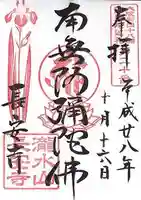 奉拝
平成廿八年
十月十六日
南無阿彌陀佛
瀧水山
長安寺